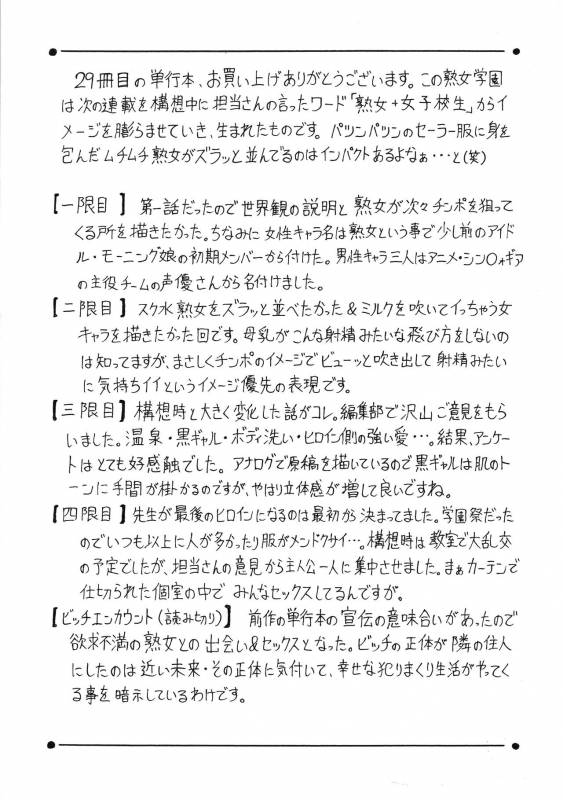 29冊目の単行本、お買い上げありがとうございます。この熟女学園
は次の連載を構想中に担当さんの言ったワード「熟女+女子校生」からイ
メージを膨らませていき、生まれたものです。パツンパツンのセーラー服に身を
包んだムチムチ熟女がズラッと並んでるのはインパクトあるよなぁ…と(笑)
【一限目】 第一話だったので世界観の説明と熟女が次々チンポを狙って
くる所を描きたかった。ちなみに女性キャラ名は熟女という事で少し前のアイド
ル・モーニング娘の初期メンバーから付けた。男性キャラ三人はアニメ・シン〇ォギア
の主役チームの声優さんから名付けました。
【二限目】 スク水熟女をズラッと並べたかった&ミルクを吹いてイッちゃう女
キャラを描きたかった回です。母乳がこんな射精みたいな飛び方をしないの
は知ってますが、まさしくチンポのイメージでビューッと吹き出して射精みたい
に気持ちイイというイメージ優先の表現です。
【三限目】構想時と大きく変化した話がコレ。編集部で沢山ご意見をもら
いました。温泉・黒ギャル・ボディ洗い・ヒロイン側の強い愛…。結果、アンケー
トはとても好感触でした。アナログで原稿を描いているので黒ギャルは肌のト
ーンに手間が掛かるのですが、やはり立体感が増して良いですね。
【四限目】先生が最後のヒロインになるのは最初から決まってました。学園祭だった
のでいつも以上に人が多かったり服がメンドクサイ…。構想時は教室で大乱交
の予定でしたが、担当さんの意見から主人公一人に集中させました。まぁカーテンで
仕切られた個室の中でみんなセックスしてるんですが。
【ビッチエンカウント(読み切り)】 前作の単行本の宣伝の意味合いがあったので
欲求不満の熟女との出会い&セックスとなった。ビッチの正体が隣の住人
にしたのは近い未来・その正体に気付いて、幸せな犯りまくり生活がやってく
る事を暗示しているわけです。